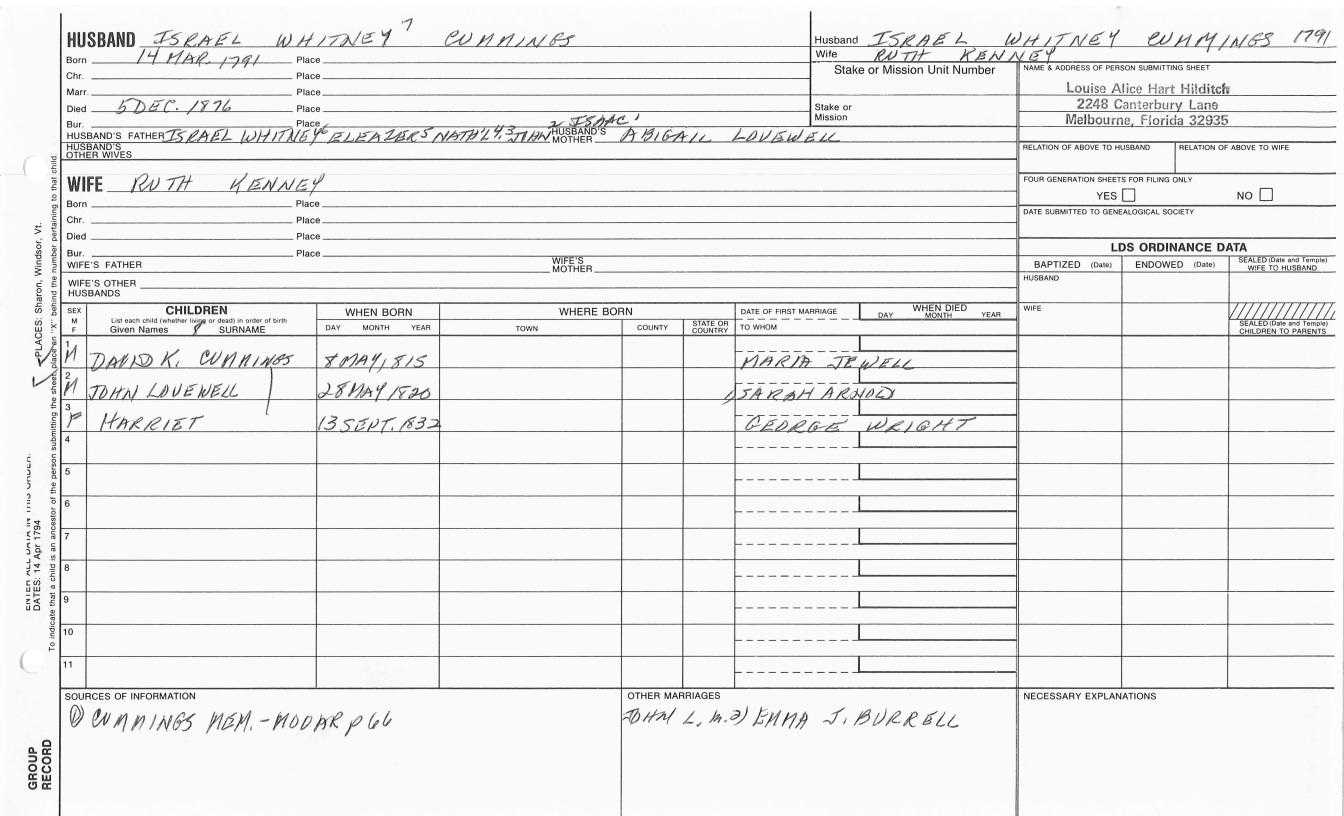 HUSBAND ISRAEL WHITNEY 7 CUMMINGS
Husband ISRAEL WHITNEY CUMMINGS 1791
Wife RUTH KENNEY
Born 14 MAR. 1791 Place
Chr. Place
Marr. Place
Died 5 DEC. 1876 Place
Bur. Place
Stake or Mission Unit Number
Stake or
Mission
NAME & ADDRESS OF PERSON SUBMITTING SHEET
Louise Alice Hart Hilditch
2248 Canterbury Lane
Melbourne, Florida 32935
HUSBAND'S FATHER ISRAEL WHITNEY 6 ELEAZER 5 NATH'L 4,3 JOHN 2 ISAAC 1 HUSBAND'S MOTHER ABIGAIL LOVEWELL
HUSBAND'S
OTHER WIVES
RELATION OF ABOVE TO HUSBAND RELATION OF ABOVE TO WIFE
WIFE RUTH KENNEY
Born Place
Chr. Place
Died Place
Bur. Place
WIFE'S FATHER WIFE'S MOTHER
WIFE'S OTHER
HUSBANDS
FOUR GENERATION SHEETS FOR FILING ONLY
YES NO
DATE SUBMITTED TO GENEALOGICAL SOCIETY
LDS ORDINANCE DATA
BAPTIZED (Date) ENDOWED (Date) SEALED (Date and Temple) WIFE TO HUSBAND
HUSBAND
WIFE
SEALED (Date and Temple) CHILDREN TO PARENTS
SEX M F
CHILDREN
List each child (whether living or dead) in order of birth
Given Names 8 SURNAME
WHEN BORN
DAY MONTH YEAR
WHERE BORN
TOWN COUNTY STATE OR COUNTRY
DATE OF FIRST MARRIAGE
TO WHOM
WHEN DIED
DAY MONTH YEAR
1 M DAVID K. CUMMINGS 8 MAY, 1815 MARIA JEWELL
2 M JOHN LOVEWELL 28 MAY 1820 1) SARAH ARNOLD
3 F HARRIET 13 SEPT. 1832 GEORGE WRIGHT
4
5
6
7
8
9
10
11
SOURCES OF INFORMATION
① CUMMINGS MEM. - MODAR p 66
OTHER MARRIAGES
JOHN L. m. 2) EMMA J. BURRELL
NECESSARY EXPLANATIONS
PLACES: Sharon, Windsor, Vt.
ENTER ALL DATA IN THIS ORDER:
DATES: 14 Apr 1794
To indicate that a child is an ancestor of the person submitting the sheet, place an "X" behind the number pertaining to that child.
GROUP
RECORD